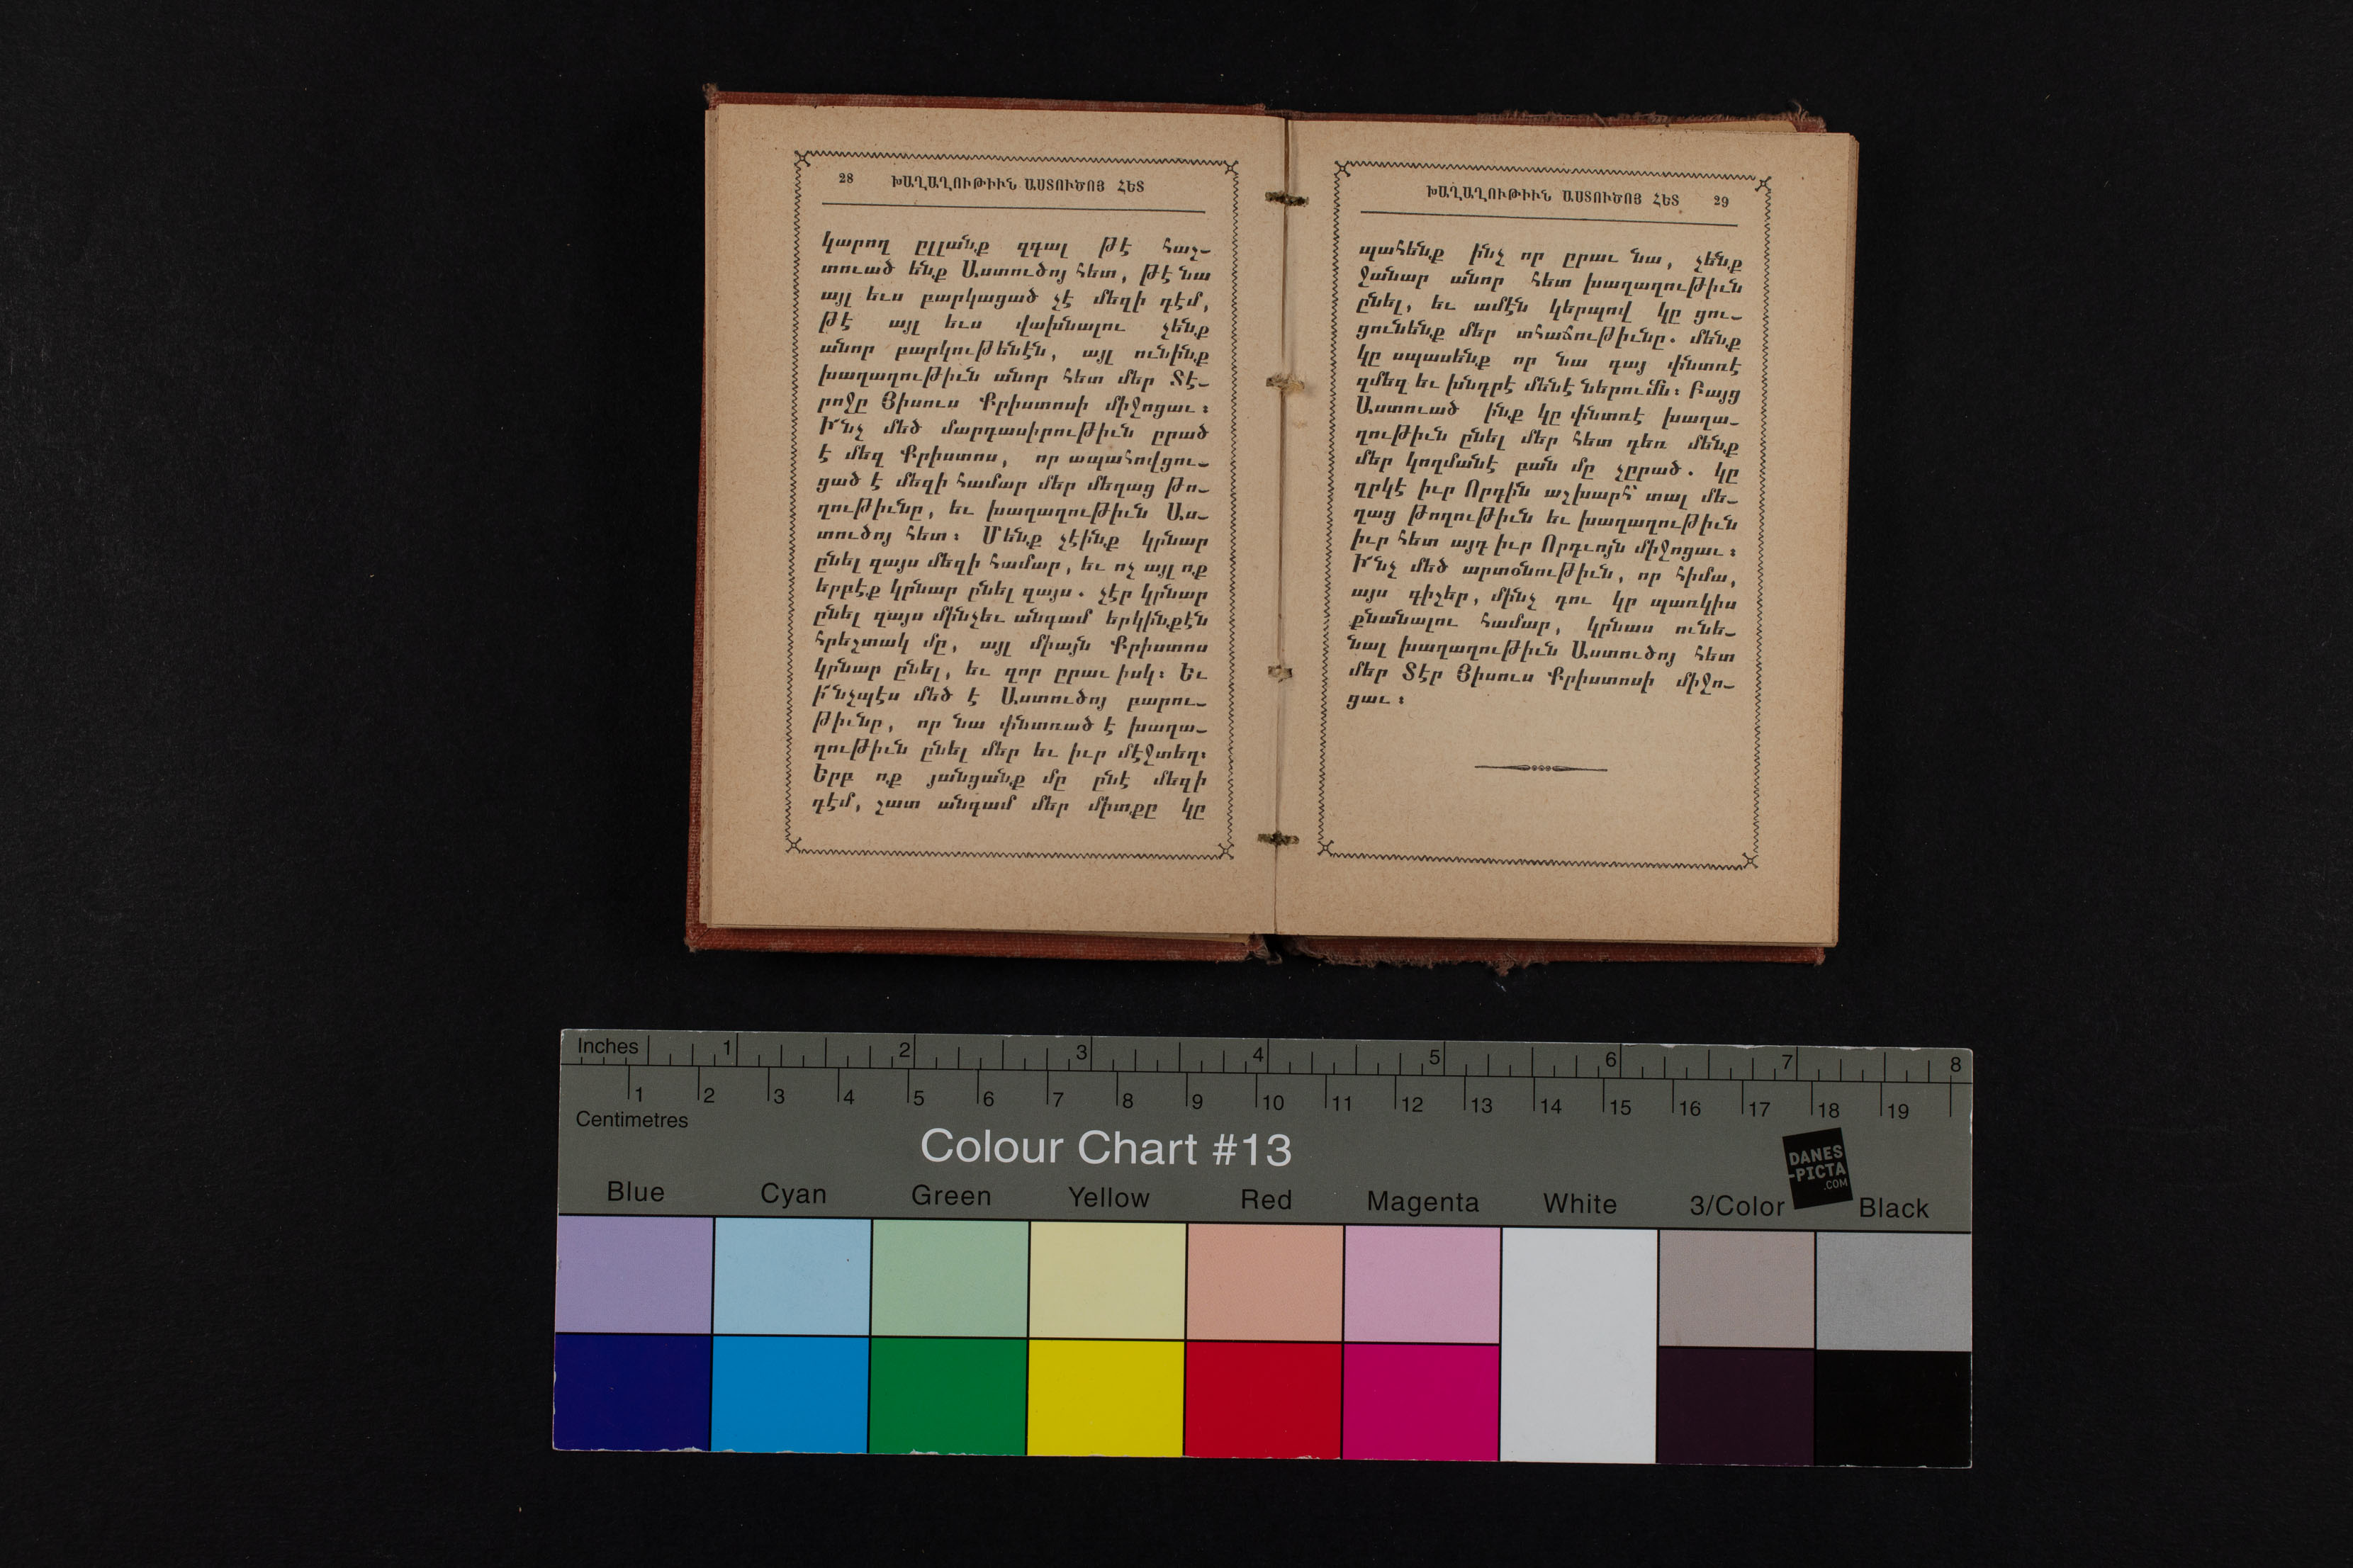 28 ԽԱՂԱՂՈՒԹԻՒՆ ԱՍՏՈՒԾՈՅ ՀԵՏ
կարող ըլլանք զգալ թէ հաշ-
տուած ենք Աստուծոյ հետ, թէ նա
այլ եւս բարկացած չէ մեզի դէմ,
թէ այլ եւս վախնալու չենք
անոր բարկութենէն, այլ ունինք
խաղաղութիւն անոր հետ մեր Տէ-
րոջը Յիսուս Քրիստոսի միջոցաւ։
Ի՜նչ մեծ մարդասիրութիւն ըրած
է մեզ Քրիստոս, որ ապահովցու-
ցած է մեզի համար մեր մեղաց թո-
ղութիւնը, եւ խաղաղութիւն Աս-
տուծոյ հետ։ Մենք չէինք կրնար
ընել զայս մեզի համար, եւ ոչ այլ ոք
երբէք կրնար ընել զայս. չէր կրնար
ընել զայս մինչեւ անգամ երկինքէն
հրեշտակ մը, այլ միայն Քրիստոս
կրնար ընել, եւ զոր ըրաւ իսկ։ Եւ
ի՜նչպէս մեծ է Աստուծոյ բարու-
թիւնը, որ նա փնտռած է խաղա-
ղութիւն ընել մեր եւ իւր մէջտեղ։
Երբ ոք յանցանք մը ընէ մեզի
դէմ, շատ անգամ մեր միտքը կը
ԽԱՂԱՂՈՒԹԻՒՆ ԱՍՏՈՒԾՈՅ ՀԵՏ 29
պահենք ինչ որ ըրաւ նա, չենք
ջանար անոր հետ խաղաղութիւն
ընել, եւ ամէն կերպով կը ցու-
ցունենք մեր տհաճութիւնը. մենք
կը սպասենք որ նա գայ փնտռէ
զմեզ եւ խնդրէ մենէ ներումն։ Բայց
Աստուած ինք կը փնտռէ խաղա-
ղութիւն ընել մեր հետ դեռ մենք
մեր կողմանէ բան մը չըրած. կը
ղրկէ իւր Որդին աշխարհ՝ տալ մե-
ղաց թողութիւն եւ խաղաղութիւն
իւր հետ այդ իւր Որդւոյն միջոցաւ։
Ի՜նչ մեծ արտօնութիւն, որ հիմա,
այս գիշեր, մինչ դու կը պառկիս
քնանալու համար, կրնաս ունե-
նալ խաղաղութիւն Աստուծոյ հետ
մեր Տէր Յիսուս Քրիստոսի միջո-
ցաւ։
Inches 1 2 3 4 5 6 7 8
1 2 3 4 5 6 7 8 9 10 11 12 13 14 15 16 17 18 19
Centimetres
Colour Chart #13
DANES
-PICTA
.COM
Blue Cyan Green Yellow Red Magenta White 3/Color Black